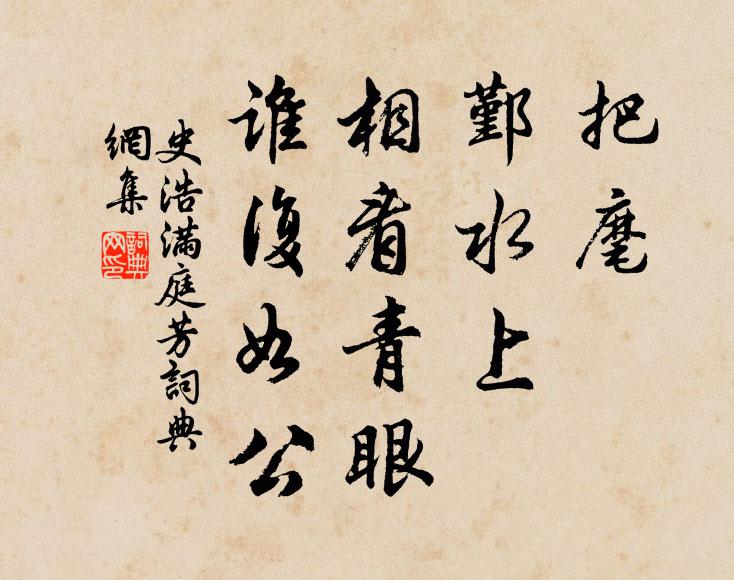 把麾
鄞水上
相看青眼
誰復如公
史浩滿庭芳詞典
網集
詞典
网印